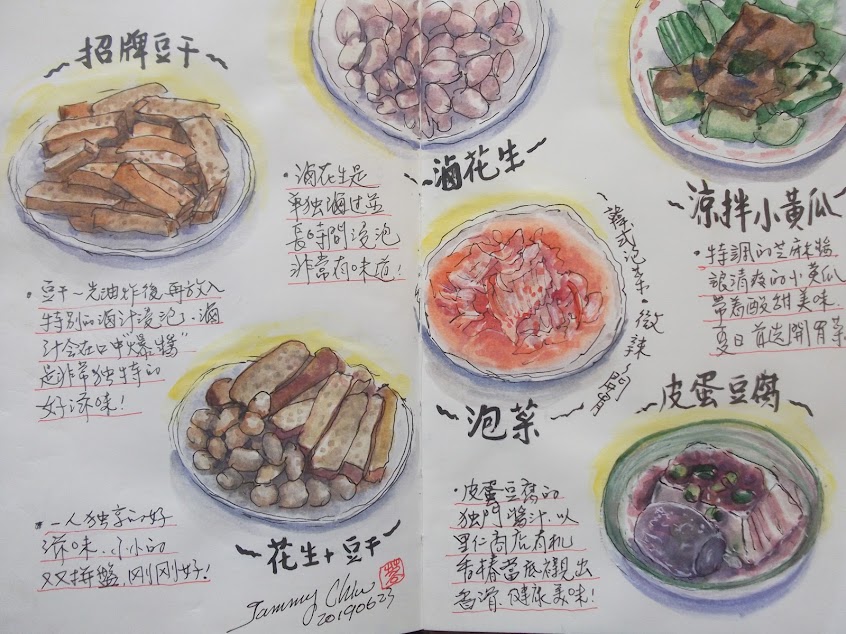 招牌豆干
·豆干~先油炸後,再放入
特別的滷汁浸泡、滷
汁会在口中"爆獎"
是非常独特的
好滋味!
滷花生
·滷花生是
单独滷过並
長時間浸泡
非常有味道!
一人独享的好
滋味、小小的
双拼盤,剛剛好!
花生+豆干
Tammy Chiu
20190623
涼拌小黃瓜
·特調的芝麻醬
跟清爽的小黃瓜
帶着酸甜美味、
夏日首选開胃菜
韓式泡菜·微辣
泡菜
皮蛋豆腐
·皮蛋豆腐的
独門醬汁、以
里仁商店有机
香椿當底襯出
香滑、健康美味!